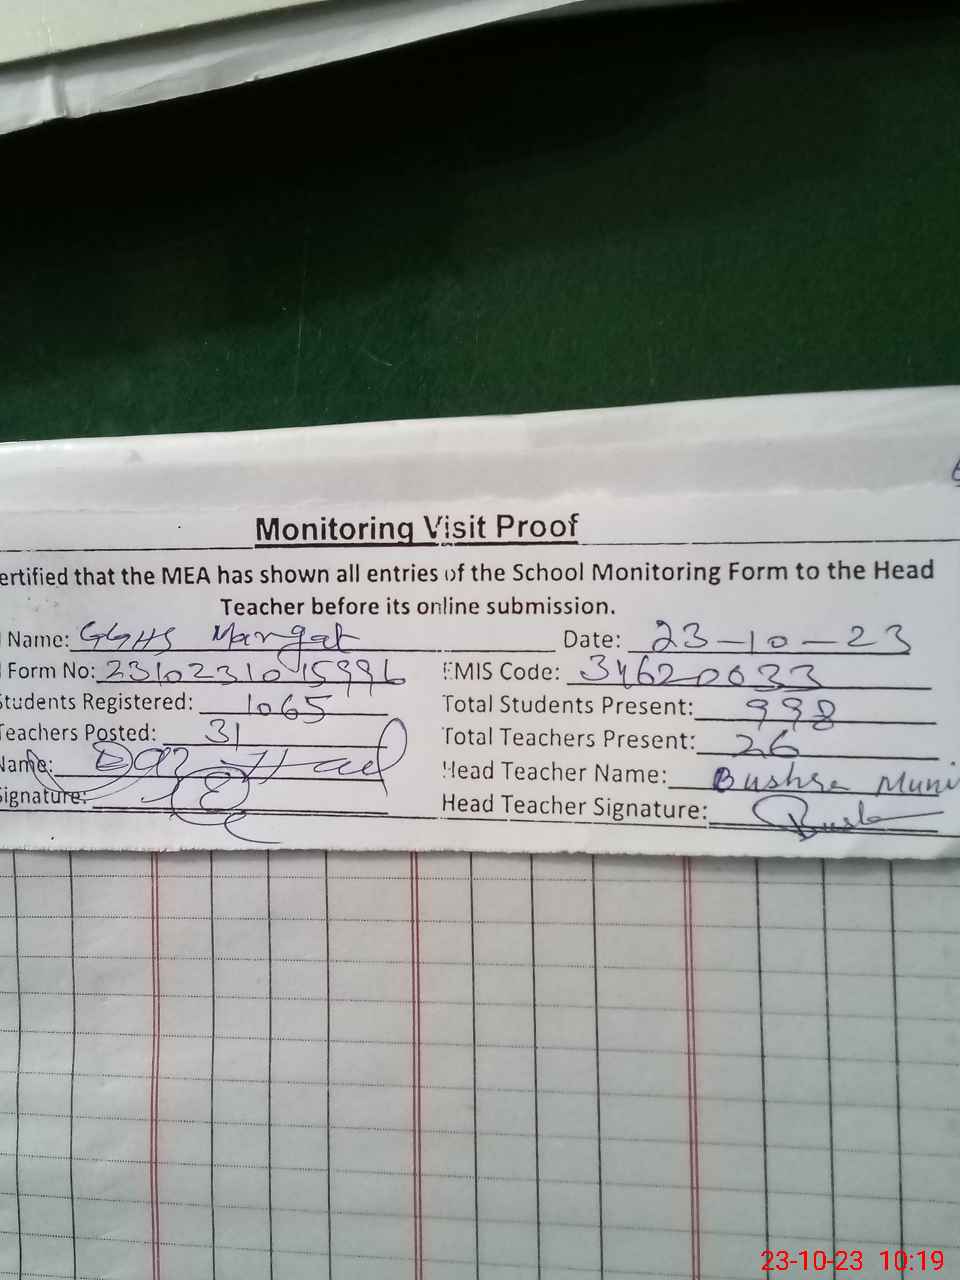 Monitoring Visit Proof
ertified that the MEA has shown all entries of the School Monitoring Form to the Head
Teacher before its online submission.
Name: GGHS Mangat Date: 23-10-23
Form No: 23102310 15996 EMIS Code: 34620033
Students Registered: 1065 Total Students Present: 998
Teachers Posted: 31 Total Teachers Present: 26
Name: Head Teacher Name: Bushra Muni
Signature: Head Teacher Signature:
23-10-23 10:19